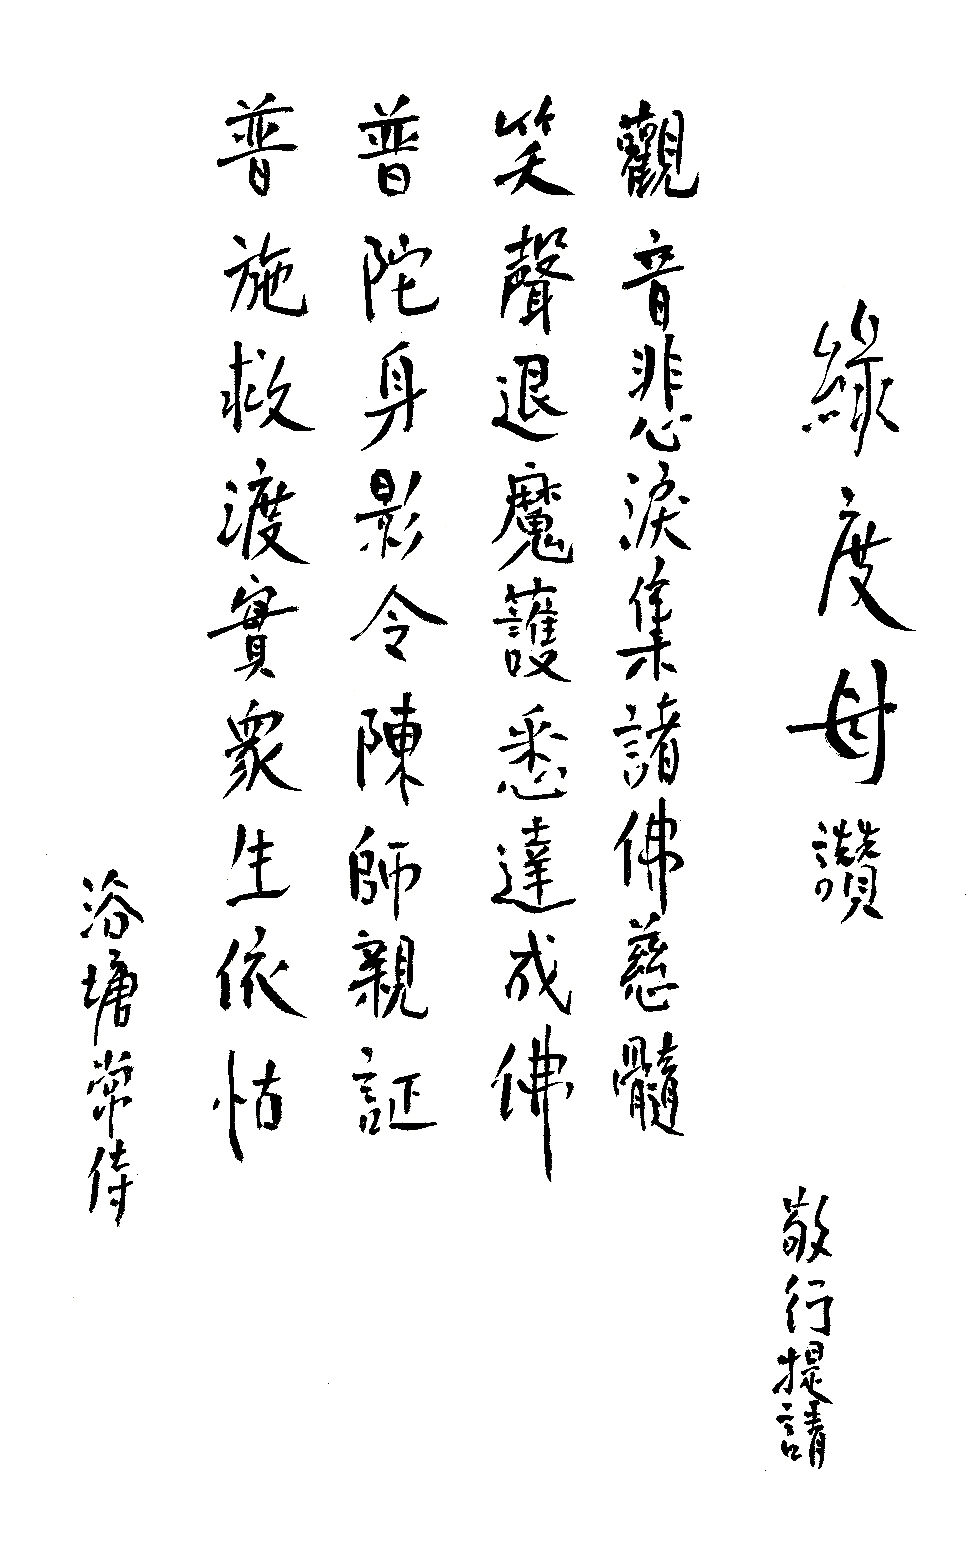 綠度母讚
敬行提請
觀音悲淚集諸佛慈髓
笑聲退魔護悉達成佛
普陀身影令陳師親証
普施救渡實眾生依怙
浴塘常侍